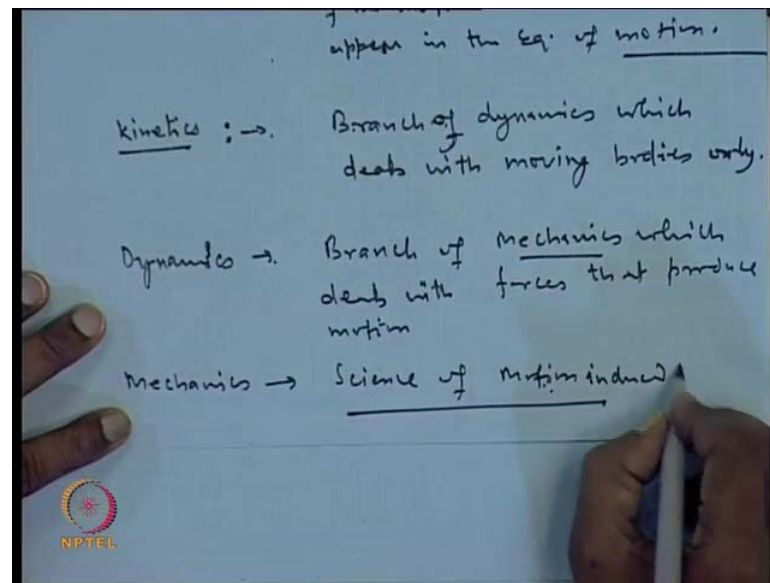 appear in the Eq. of motion.
Kinetics :→. Branch of dynamics which
deals with moving bodies only.
Dynamics →. Branch of mechanics which
deals with forces that produce
motion
Mechanics → Science of motion induced
NPTEL